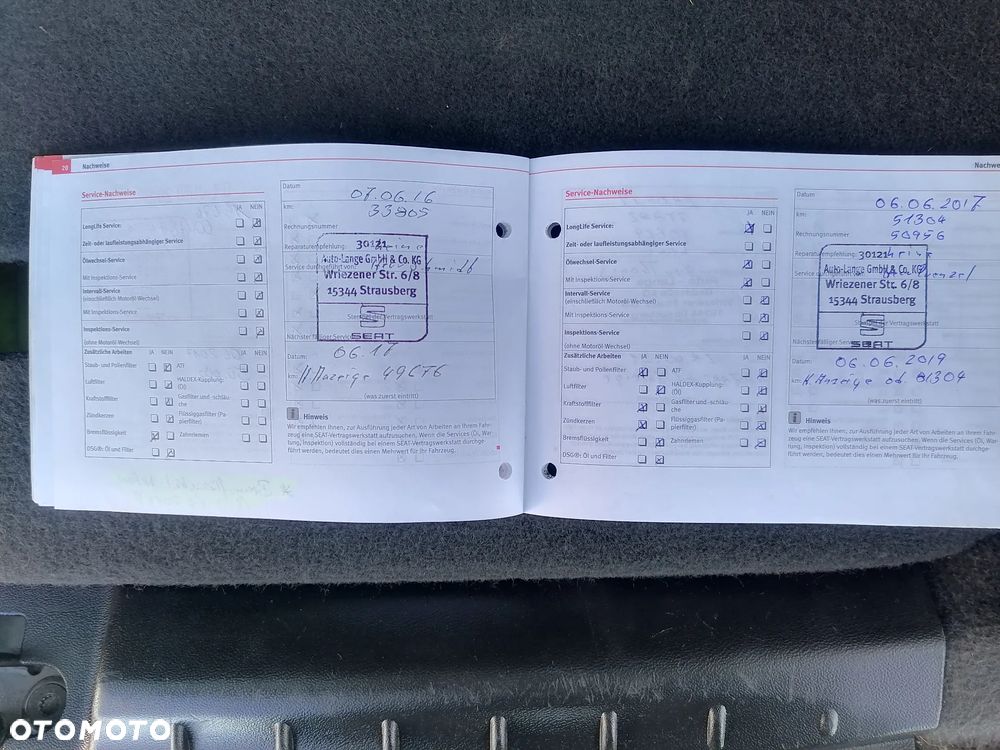 20
Nachweise
Service-Nachweise
JA NEIN
LongLife Service:
Zeit- oder laufleistungsabhängiger Service
Ölwechsel-Service
Mit Inspektions-Service
Intervall-Service
(einschließlich Motoröl-Wechsel)
Mit Inspektions-Service
Inspektions-Service
(ohne Motoröl-Wechsel)
Zusätzliche Arbeiten JA NEIN JA NEIN
Staub- und Pollenfilter ATF
Luftfilter HALDEX-Kupplung: (Öl)
Kraftstofffilter Gasfilter und -schläuche
Zündkerzen Flüssiggasfilter (Papierfilter)
Bremsflüssigkeit Zahnriemen
DSG®: Öl und Filter
Datum
07.06.16
km:
33805
Rechnungsnummer
Reparaturempfehlung:
30121
Service durchgeführt von:
Auto-Lange GmbH & Co. KG
Wriezener Str. 6/8
15344 Strausberg
SEAT
Stempel der Vertragswerkstatt
Nächster fälliger Service
Datum:
06.17
km:
Anzeige
(was zuerst eintritt)
Hinweis
Wir empfehlen Ihnen, zur Ausführung jeder Art von Arbeiten an Ihrem Fahr-
zeug eine SEAT-Vertragswerkstatt aufzusuchen. Wenn die Services (Öl, War-
tung, Inspektion) vollständig bei einem SEAT-Vertragswerkstatt durchge-
führt werden, bedeutet dies einen Mehrwert für Ihr Fahrzeug.
Service-Nachweise
JA NEIN
LongLife Service:
Zeit- oder laufleistungsabhängiger Service
Ölwechsel-Service
Mit Inspektions-Service
Intervall-Service
(einschließlich Motoröl-Wechsel)
Mit Inspektions-Service
Inspektions-Service
(ohne Motoröl-Wechsel)
Zusätzliche Arbeiten JA NEIN JA NEIN
Staub- und Pollenfilter ATF
Luftfilter HALDEX-Kupplung: (Öl)
Kraftstofffilter Gasfilter und -schläuche
Zündkerzen Flüssiggasfilter (Papierfilter)
Bremsflüssigkeit Zahnriemen
DSG®: Öl und Filter
Nachwe
Datum
06.06.2017
km:
51304
Rechnungsnummer
50956
Reparaturempfehlung:
30121
Auto-Lange GmbH & Co. KG
Wriezener Str. 6/8
15344 Strausberg
SEAT
Nächster fälliger Service
Datum:
06.06.2019
km:
Anzeige od. 81304
(was zuerst eintritt)
Hinweis
Wir empfehlen Ihnen, zur Ausführung jeder Art von Arbeiten an Ihrem Fahr-
zeug eine SEAT-Vertragswerkstatt aufzusuchen. Wenn die Services (Öl, War-
tung, Inspektion) vollständig bei einem SEAT-Vertragswerkstatt durchge-
führt werden, bedeutet dies einen Mehrwert für Ihr Fahrzeug.
OTOMOTO